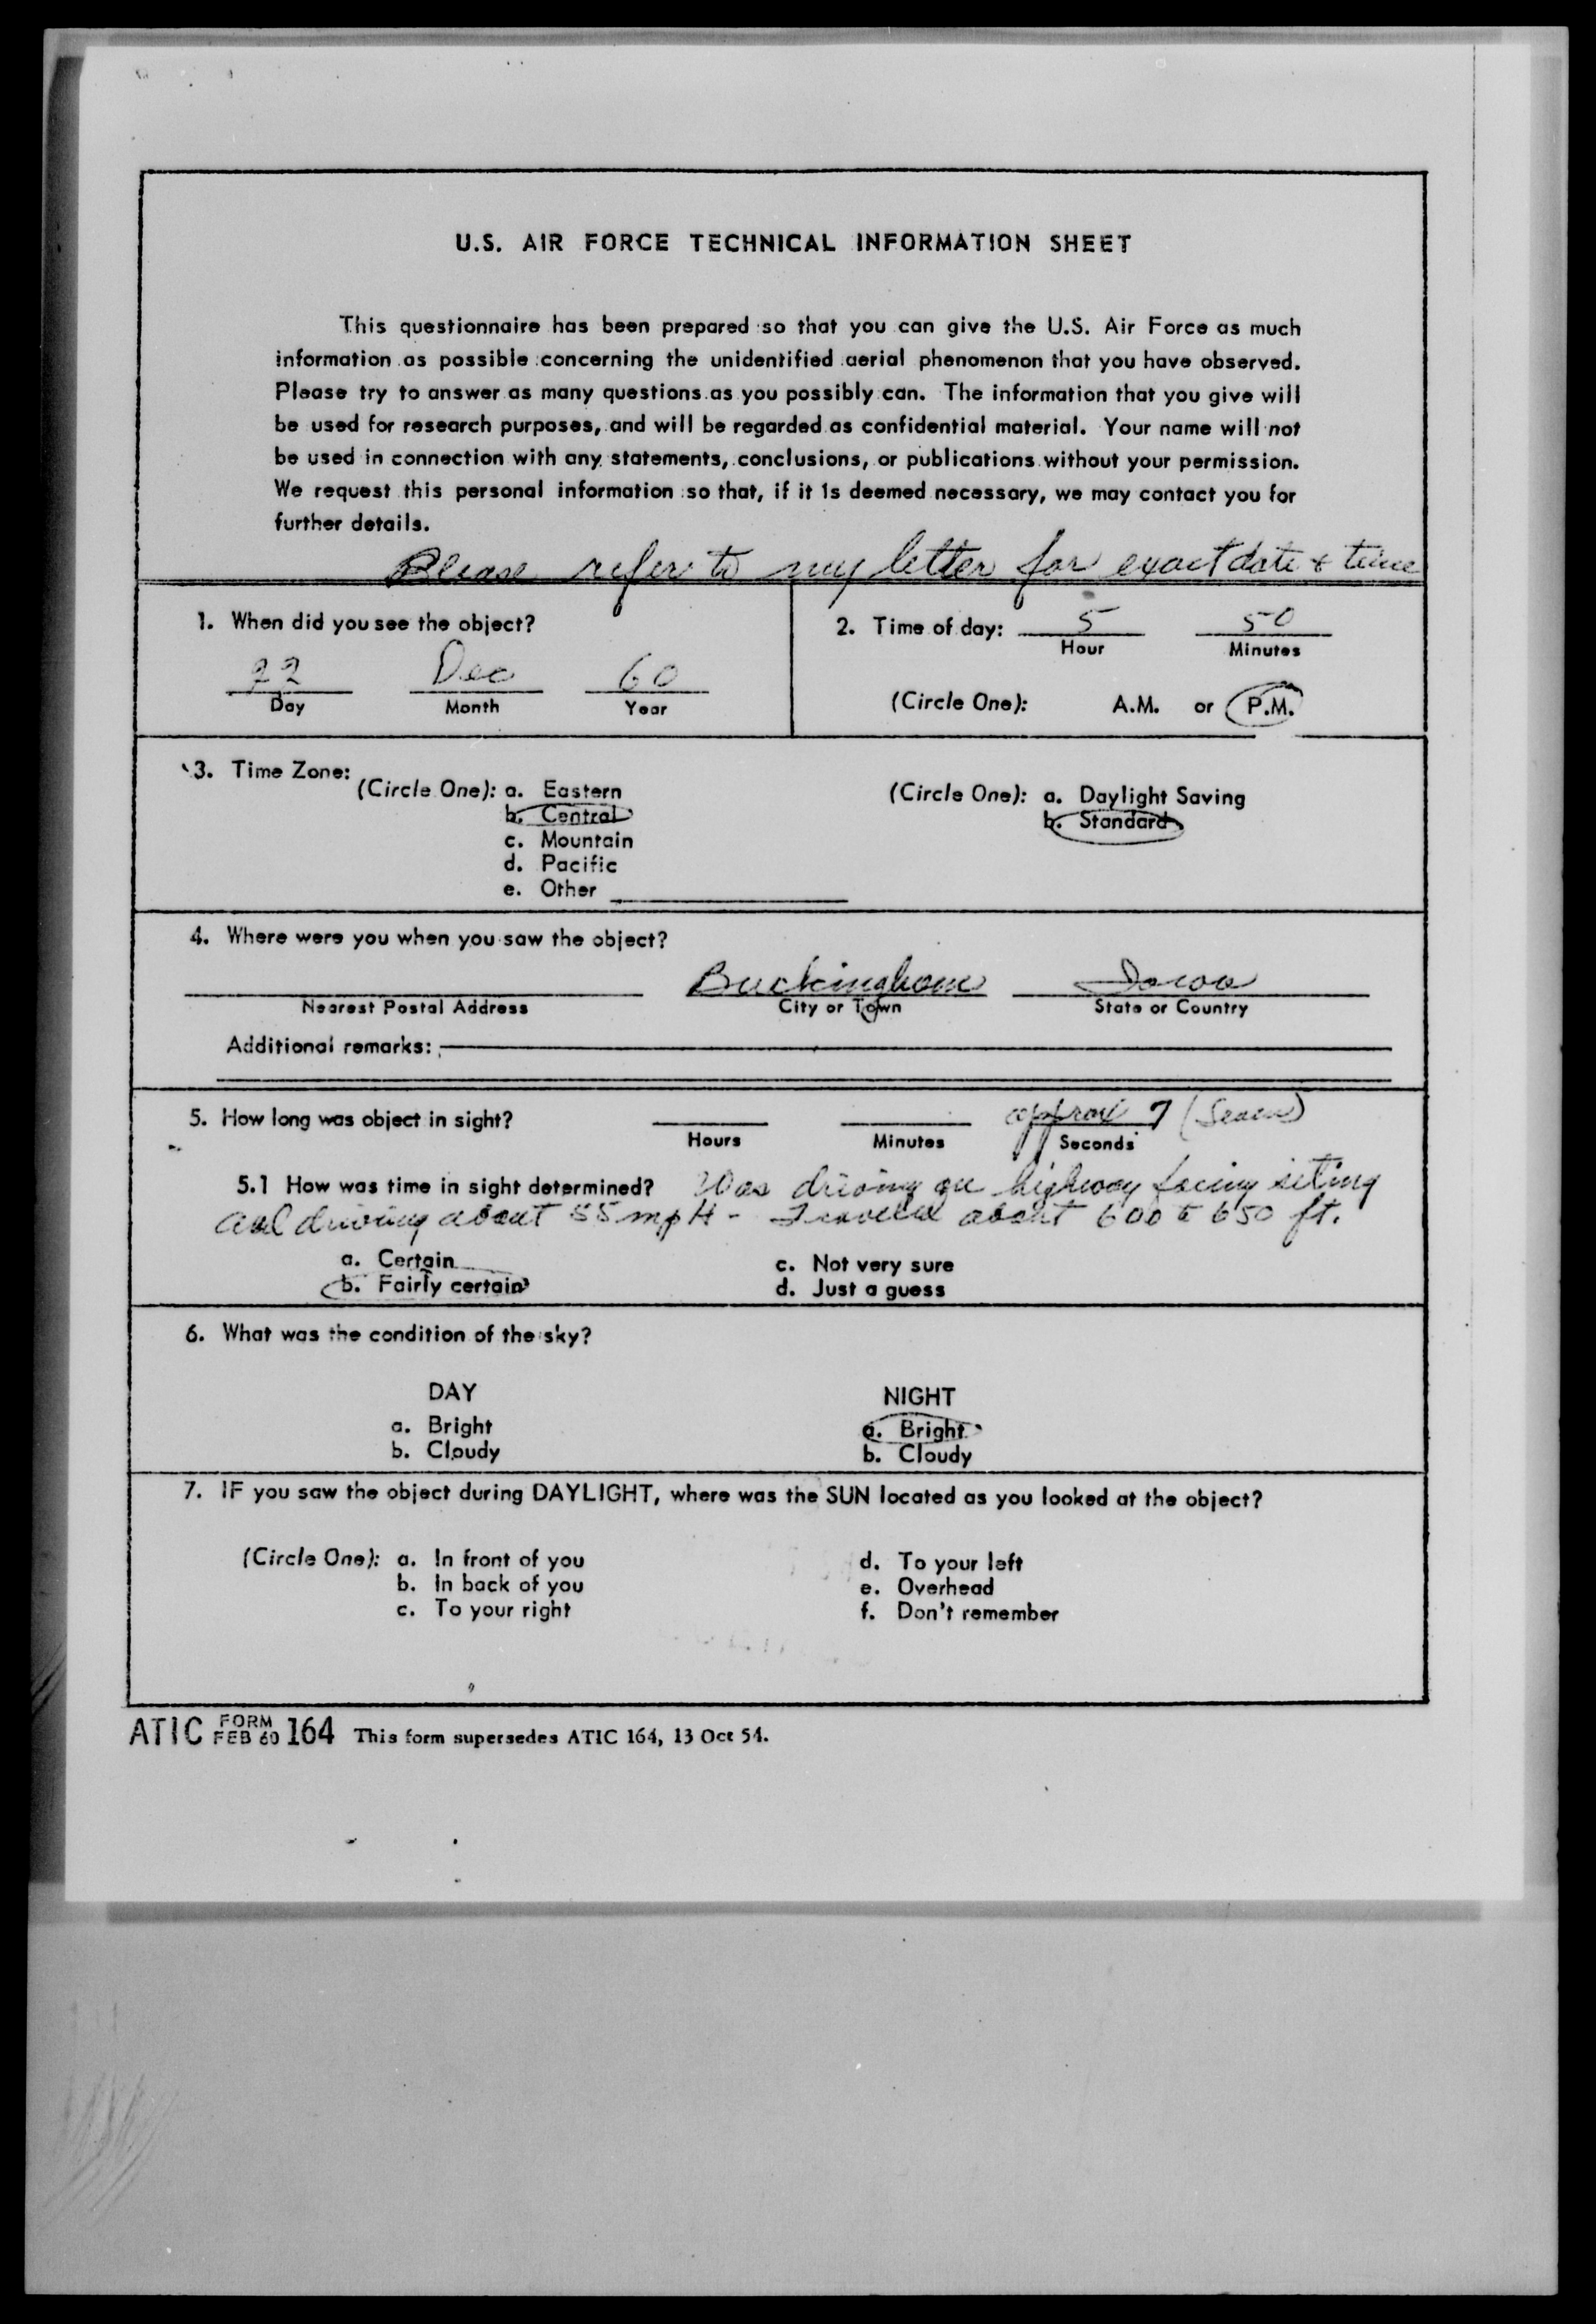 U.S. AIR FORCE TECHNICAL INFORMATION SHEET
This questionnaire has been prepared so that you can give the U.S. Air Force as much
information as possible concerning the unidentified aerial phenomenon that you have observed.
Please try to answer as many questions as you possibly can. The information that you give will
be used for research purposes, and will be regarded as confidential material. Your name will not
be used in connection with any statements, conclusions, or publications without your permission.
We request this personal information so that, if it is deemed necessary, we may contact you for
further details.
Please refer to my letter for exact date & time
1. When did you see the object?
22 Dec 60
Day Month Year
2. Time of day: 5 50
Hour Minutes
(Circle One): A.M. or P.M.
3. Time Zone:
(Circle One): a. Eastern
b. Central
c. Mountain
d. Pacific
e. Other
(Circle One): a. Daylight Saving
b. Standard
4. Where were you when you saw the object?
Buckingham Iowa
Nearest Postal Address City or Town State or Country
Additional remarks:
5. How long was object in sight? approx 7 (Seven)
Hours Minutes Seconds
5.1 How was time in sight determined? Was driving on highway facing siting
and driving about 55 mpH - Traveled about 600 to 650 ft.
a. Certain
b. Fairly certain
c. Not very sure
d. Just a guess
6. What was the condition of the sky?
DAY
a. Bright
b. Cloudy
NIGHT
a. Bright
b. Cloudy
7. IF you saw the object during DAYLIGHT, where was the SUN located as you looked at the object?
(Circle One): a. In front of you
b. In back of you
c. To your right
d. To your left
e. Overhead
f. Don't remember
ATIC FORM FEB 60 164 This form supersedes ATIC 164, 13 Oct 54.